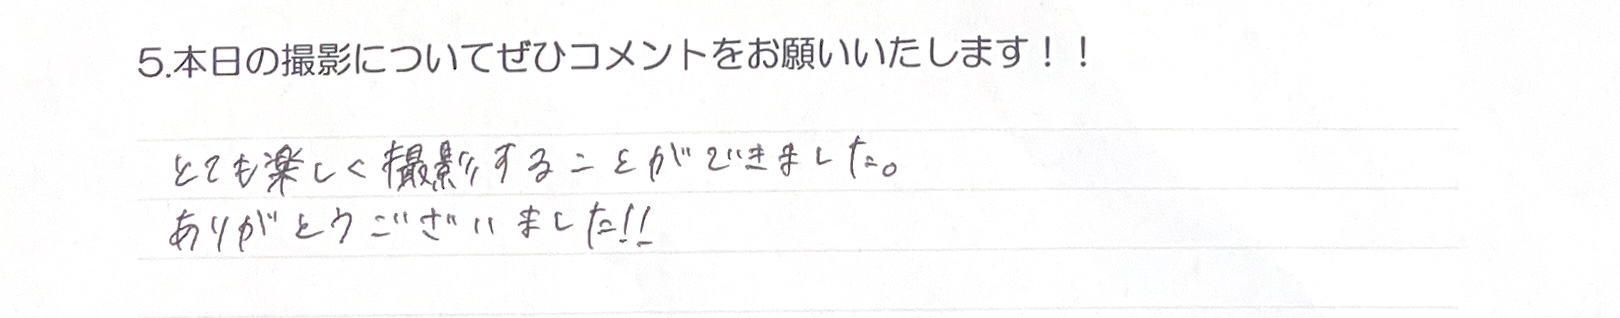 5.本日の撮影についてぜひコメントをお願いいたします！！
とても楽しく撮影することができました。
ありがとうございました!!